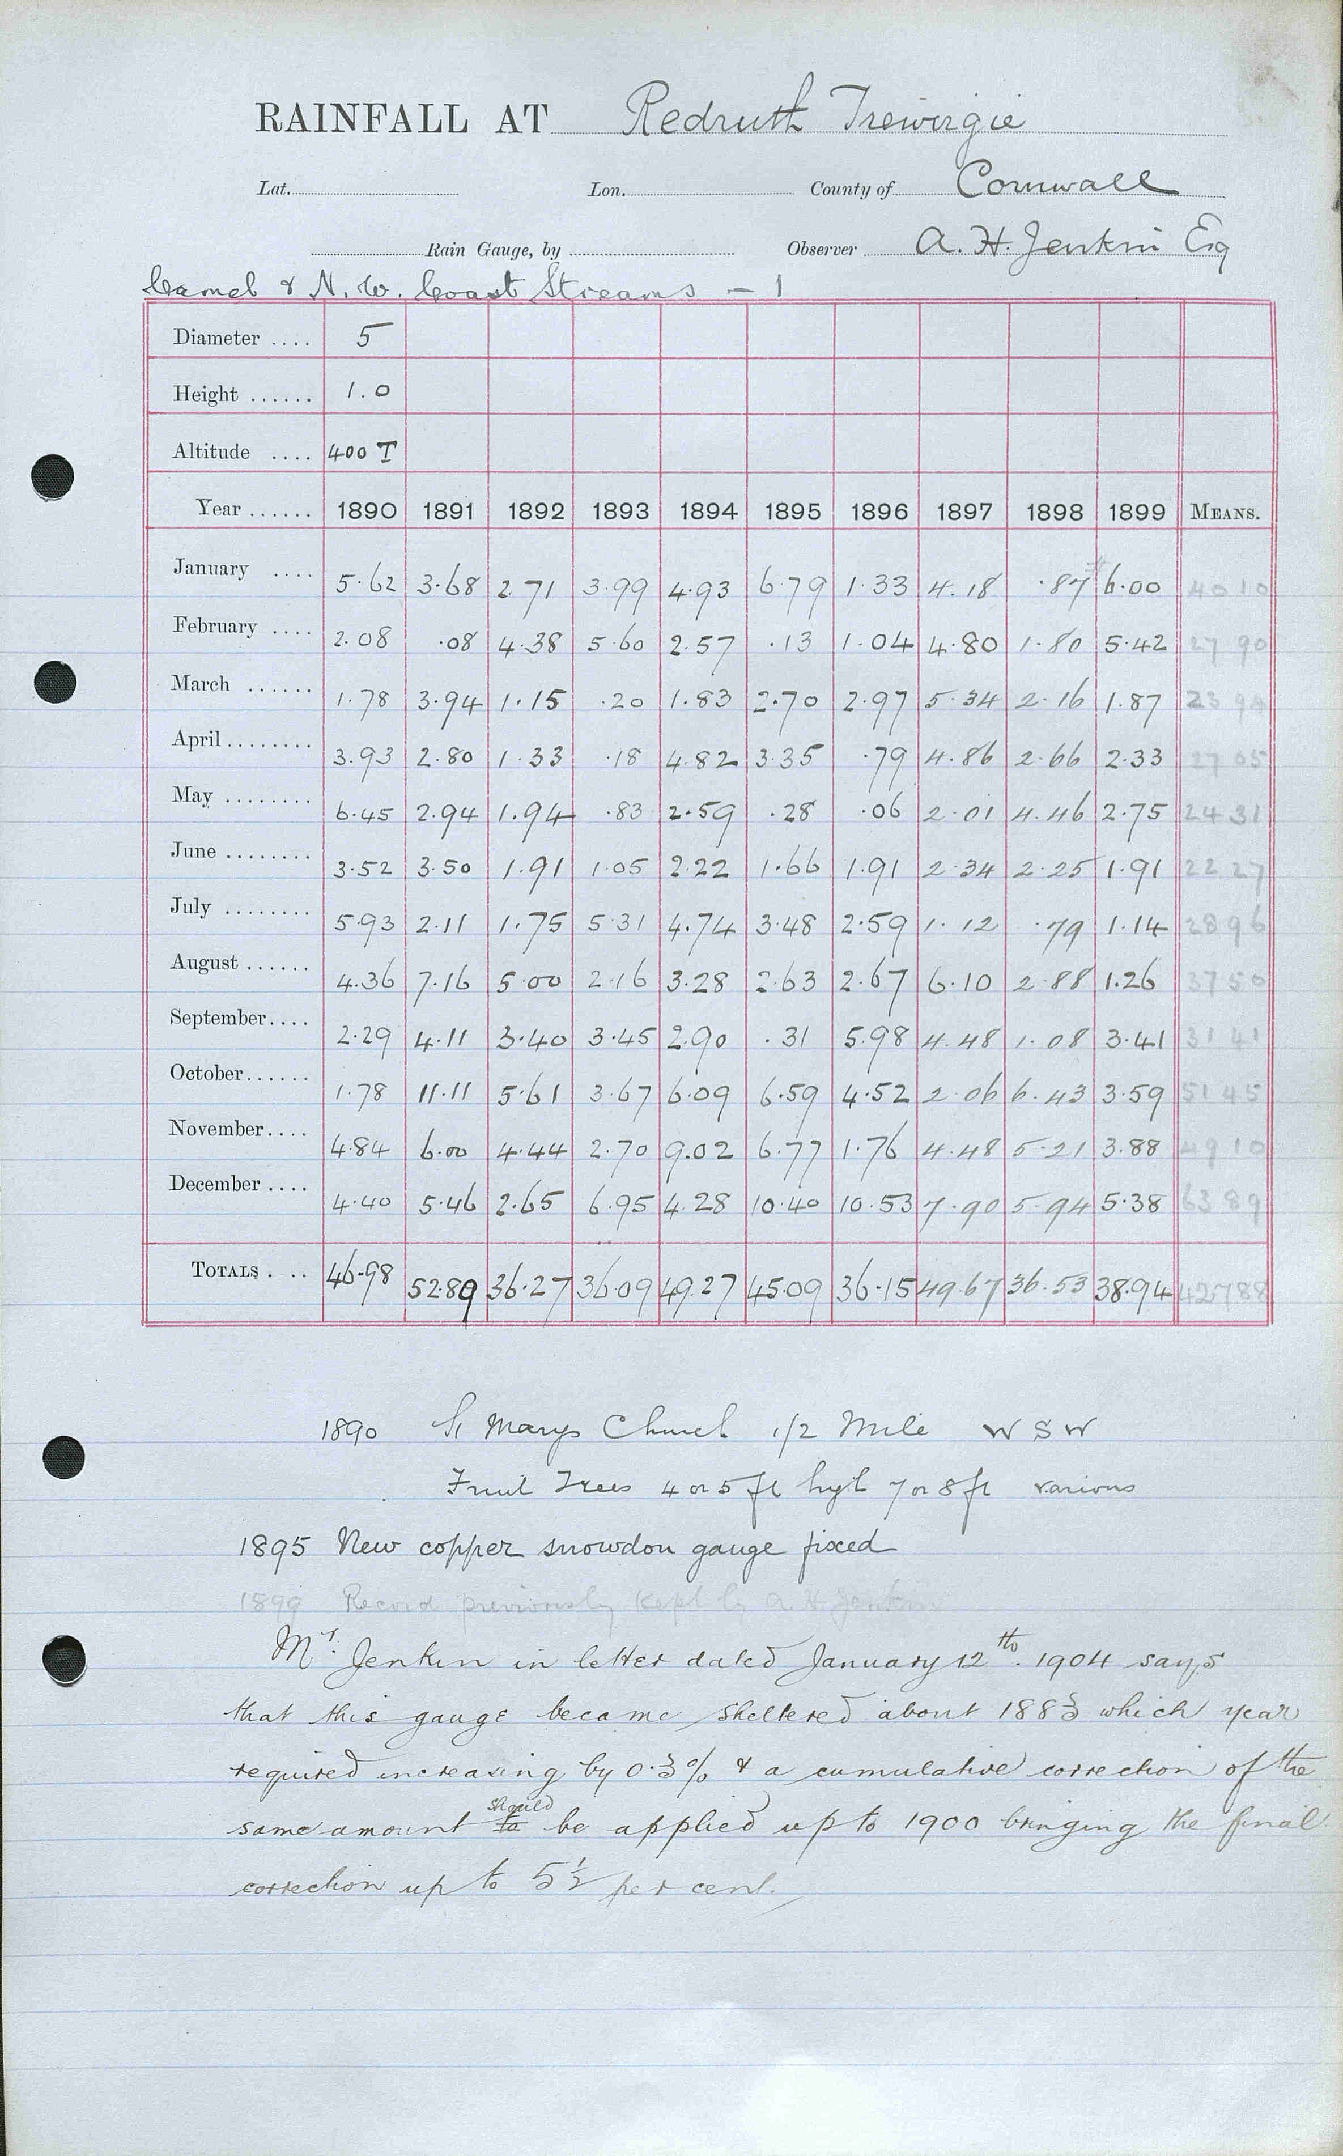 RAINFALL AT Redruth Trewirgie
Lat. Lon. County of Cornwall
Rain Gauge, by Observer A. H. Jenkin Esq
Camel & N. W. Coast Streams – 1
Diameter .... 5
Height ...... 1.0
Altitude .... 400 T
Year ...... 1890 1891 1892 1893 1894 1895 1896 1897 1898 1899 MEANS.
January .... 5.62 3.68 2.71 3.99 4.93 6.79 1.33 4.18 .87 6.00 40 10
February .... 2.08 .08 4.38 5.60 2.57 .13 1.04 4.80 1.80 5.42 27 90
March ...... 1.78 3.94 1.15 .20 1.83 2.70 2.97 5.34 2.16 1.87 23 94
April ........ 3.93 2.80 1.33 .18 4.82 3.35 .79 4.86 2.66 2.33 27 05
May ........ 6.45 2.94 1.94 .83 2.59 .28 .06 2.01 4.46 2.75 24 31
June ........ 3.52 3.50 1.91 1.05 2.22 1.66 1.91 2.34 2.25 1.91 22 27
July ........ 5.93 2.11 1.75 5.31 4.74 3.48 2.59 1.12 .79 1.14 28 96
August ...... 4.36 7.16 5.00 2.16 3.28 2.63 2.67 6.10 2.88 1.26 37 50
September .... 2.29 4.11 3.40 3.45 2.90 .31 5.98 4.48 1.08 3.41 31 41
October ...... 1.78 11.11 5.61 3.67 6.09 6.59 4.52 2.06 6.43 3.59 51 45
November .... 4.84 6.00 4.44 2.70 9.02 6.77 1.76 4.48 5.21 3.88 49 10
December .... 4.40 5.46 2.65 6.95 4.28 10.40 10.53 7.90 5.94 5.38 63 89
TOTALS . .. 46.98 52.89 36.27 36.09 49.27 45.09 36.15 49.67 36.53 38.94 427 88
1890 St Marys Church 1/2 Mile W S W
Fruit Trees 4 or 5 ft hight 7 or 8 ft various
1895 New copper snowdon gauge fixed
1899 Record previously kept by A. H. Jenkin
Mr. Jenkin in letter dated January 12th. 1904 says
that this gauge became sheltered about 1883 which year
required increasing by 0.3% & a cumulative correction of the
same amount should be applied up to 1900 bringing the final
correction up to 5½ per cent.